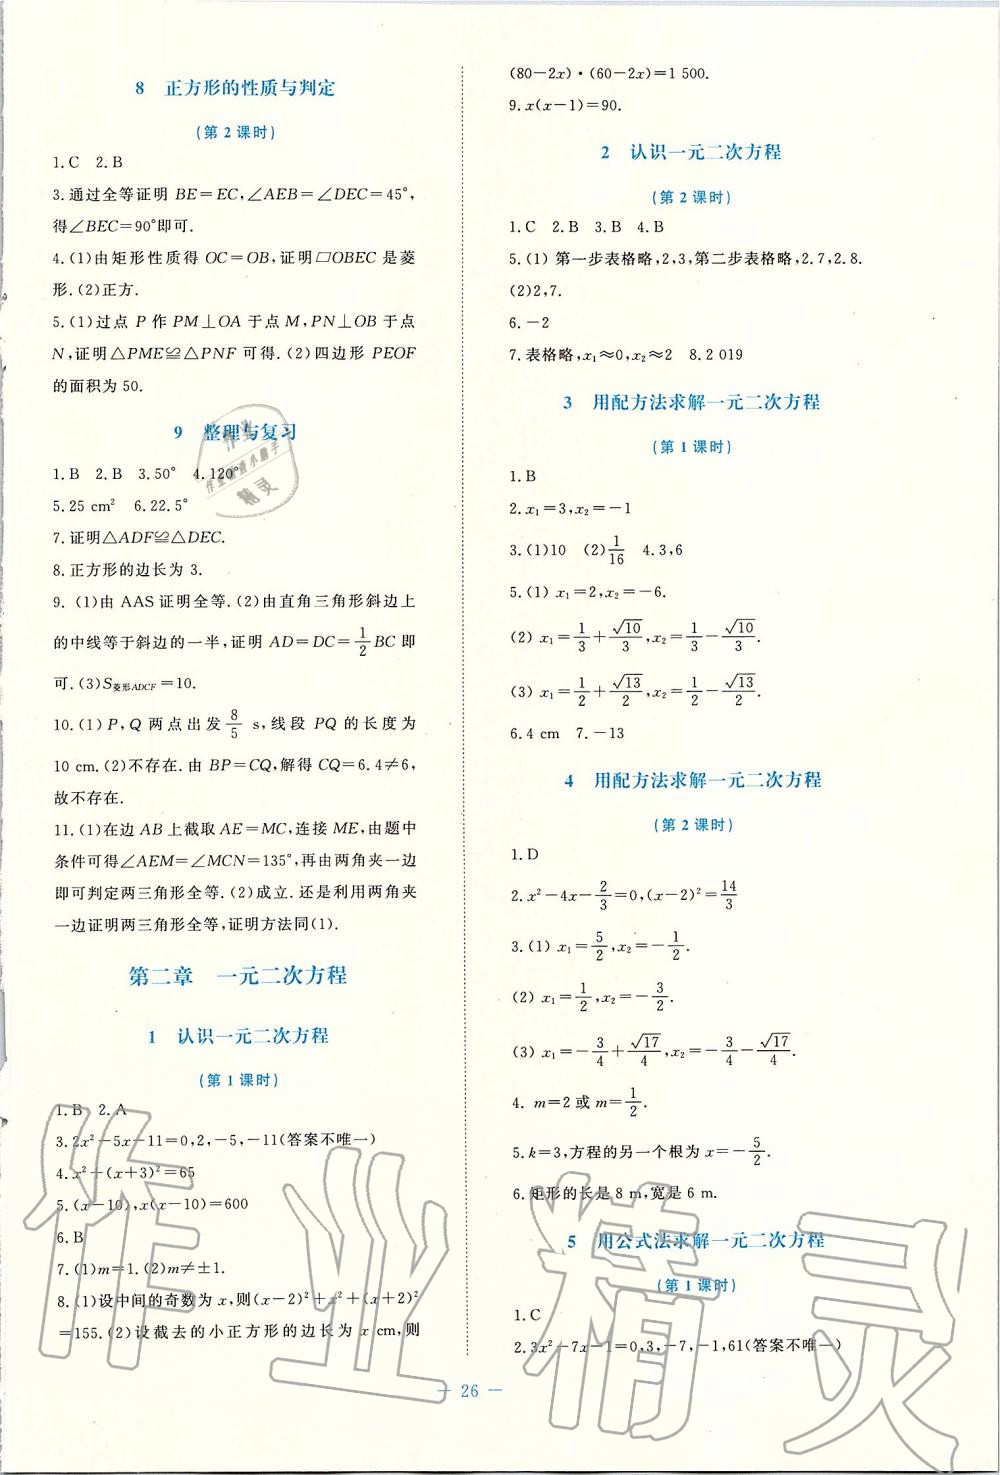 8 正方形的性质与判定
(第 2 课时)
1.C 2.B
3.通过全等证明 BE=EC,∠AEB=∠DEC=45°,
得∠BEC=90°即可.
4.(1)由矩形性质得 OC=OB,证明▱OBEC 是菱
形.(2)正方.
5.(1)过点 P 作 PM⊥OA 于点 M,PN⊥OB 于点
N,证明△PME≌△PNF 可得.(2)四边形 PEOF
的面积为 50.
9 整理与复习
1.B 2.B 3.50° 4.120°
5.25 cm² 6.22.5°
7.证明△ADF≌△DEC.
8.正方形的边长为 3.
9.(1)由 AAS 证明全等.(2)由直角三角形斜边上
的中线等于斜边的一半,证明 AD=DC=1/2 BC 即
可.(3)S菱形ADCF=10.
10.(1)P,Q 两点出发 8/5 s,线段 PQ 的长度为
10 cm.(2)不存在.由 BP=CQ,解得 CQ=6.4≠6,
故不存在.
11.(1)在边 AB 上截取 AE=MC,连接 ME,由题中
条件可得∠AEM=∠MCN=135°,再由两角夹一边
即可判定两三角形全等.(2)成立.还是利用两角夹
一边证明两三角形全等,证明方法同(1).
第二章 一元二次方程
1 认识一元二次方程
(第 1 课时)
1.B 2.A
3.2x²-5x-11=0,2,-5,-11(答案不唯一)
4.x²+(x+3)²=65
5.(x-10),x(x-10)=600
6.B
7.(1)m=1.(2)m≠±1.
8.(1)设中间的奇数为 x,则(x-2)²+x²+(x+2)²
=155.(2)设截去的小正方形的边长为 x cm,则
(80-2x)·(60-2x)=1 500.
9.x(x-1)=90.
2 认识一元二次方程
(第 2 课时)
1.C 2.B 3.B 4.B
5.(1) 第一步表格略,2,3,第二步表格略,2.7,2.8.
(2)2,7.
6.-2
7.表格略,x₁≈0,x₂≈2 8.2 019
3 用配方法求解一元二次方程
(第 1 课时)
1.B
2.x₁=3,x₂=-1
3.(1)10 (2)1/16 4.3,6
5.(1) x₁=2,x₂=-6.
(2) x₁=1/3+√10/3,x₂=1/3-√10/3.
(3) x₁=1/2+√13/2,x₂=1/2-√13/2.
6.4 cm 7.-13
4 用配方法求解一元二次方程
(第 2 课时)
1.D
2.x²-4x-2/3=0,(x-2)²=14/3
3.(1) x₁=5/2,x₂=-1/2.
(2) x₁=1/2,x₂=-3/2.
(3) x₁=-3/4+√17/4,x₂=-3/4-√17/4.
4. m=2 或 m=1/2.
5.k=3,方程的另一个根为 x=-5/2.
6.矩形的长是 8 m,宽是 6 m.
5 用公式法求解一元二次方程
(第 1 课时)
1.C
2.3x²-7x-1=0,3,-7,-1,61(答案不唯一)
— 26 —
作业
作业检查小助手
精灵
作业精灵